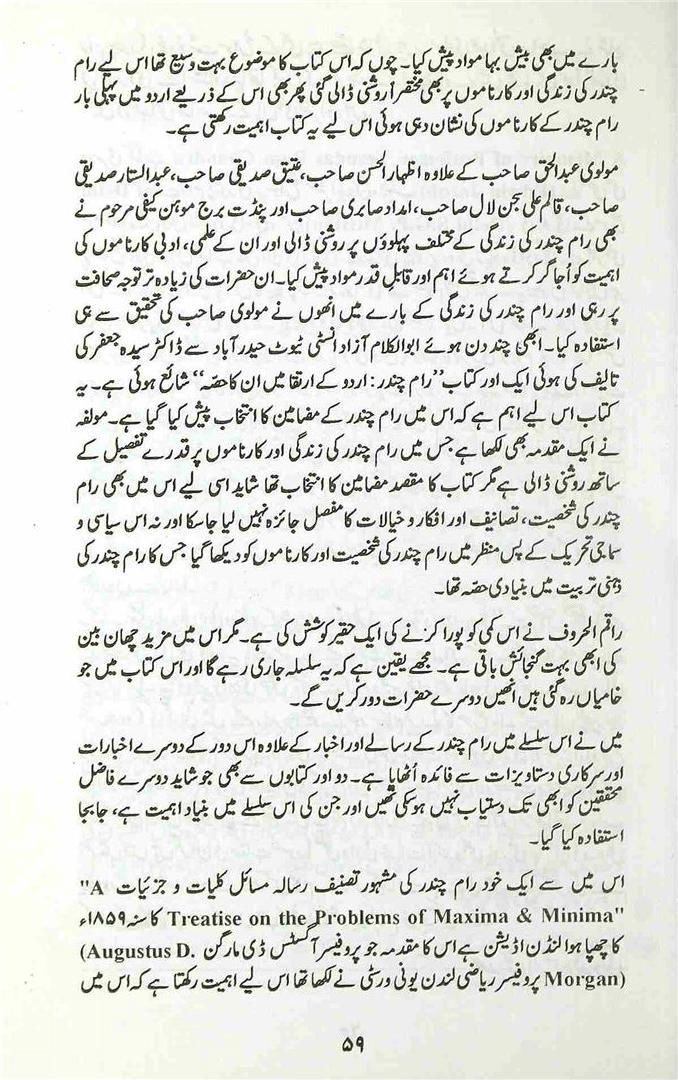 بارے میں بھی بیش بہا مواد پیش کیا۔ چوں کہ اس کتاب کا موضوع بہت وسیع تھا اس لیے رام
چندر کی زندگی اور کارناموں پر بھی مختصراً روشنی ڈالی گئی پھر بھی اس کے ذریعے اردو میں پہلی بار
رام چندر کے کارناموں کی نشان دہی ہوئی اس لیے یہ کتاب اہمیت رکھتی ہے۔
مولوی عبدالحق صاحب کے علاوہ اظہار الحسن صاحب، عتیق صدیقی صاحب، عبدالستار صدیقی
صاحب، قائم علی سجن لال صاحب، امداد صابری صاحب اور پنڈت برج موہن کیفی مرحوم نے
بھی رام چندر کی زندگی کے مختلف پہلوؤں پر روشنی ڈالی اور ان کے علمی، ادبی کارناموں کی
اہمیت کو اُجاگر کرتے ہوئے اہم اور قابلِ قدر مواد پیش کیا۔ ان حضرات کی زیادہ تر توجہ صحافت
پر رہی اور رام چندر کی زندگی کے بارے میں انھوں نے مولوی صاحب کی تحقیق سے ہی
استفادہ کیا۔ ابھی چند دن ہوئے ابوالکلام آزاد انسٹی ٹیوٹ حیدرآباد سے ڈاکٹر سیدہ جعفر کی
تالیف کی ہوئی ایک اور کتاب ’’رام چندر: اردو کے ارتقا میں ان کا حصّہ‘‘ شائع ہوئی ہے۔ یہ
کتاب اس لیے اہم ہے کہ اس میں رام چندر کے مضامین کا انتخاب پیش کیا گیا ہے۔ مولفہ
نے ایک مقدمہ بھی لکھا ہے جس میں رام چندر کی زندگی اور کارناموں پر قدرے تفصیل کے
ساتھ روشنی ڈالی ہے مگر کتاب کا مقصد مضامین کا انتخاب تھا شاید اسی لیے اس میں بھی رام
چندر کی شخصیت، تصانیف اور افکار و خیالات کا مفصل جائزہ نہیں لیا جاسکا اور نہ اس سیاسی و
سماجی تحریک کے پس منظر میں رام چندر کی شخصیت اور کارناموں کو دیکھا گیا جس کا رام چندر کی
ذہنی تربیت میں بنیادی حصّہ تھا۔
راقم الحروف نے اس کمی کو پورا کرنے کی ایک حقیر کوشش کی ہے۔ مگر اس میں مزید چھان بین
کی ابھی بہت گنجائش باقی ہے۔ مجھے یقین ہے کہ یہ سلسلہ جاری رہے گا اور اس کتاب میں جو
خامیاں رہ گئی ہیں انھیں دوسرے حضرات دور کریں گے۔
میں نے اس سلسلے میں رام چندر کے رسالے اور اخبار کے علاوہ اس دور کے دوسرے اخبارات
اور سرکاری دستاویزات سے فائدہ اُٹھایا ہے۔ دو اور کتابوں سے بھی جو شاید دوسرے فاضل
محققین کو ابھی تک دستیاب نہیں ہوسکی تھیں اور جن کی اس سلسلے میں بنیاد اہمیت ہے، جابجا
استفادہ کیا گیا۔
اس میں سے ایک خود رام چندر کی مشہور تصنیف رسالہ مسائل کلیات و جزئیات "A
Treatise on the Problems of Maxima & Minima" کا سنہ ۱۸۵۹ء
کا چھپا ہوا لنڈن اڈیشن ہے اس کا مقدمہ جو پروفیسر آگسٹس ڈی مارگن (Augustus D.
Morgan) پروفیسر ریاضی لندن یونی ورسٹی نے لکھا تھا اس لیے اہمیت رکھتا ہے کہ اس میں
۵۹